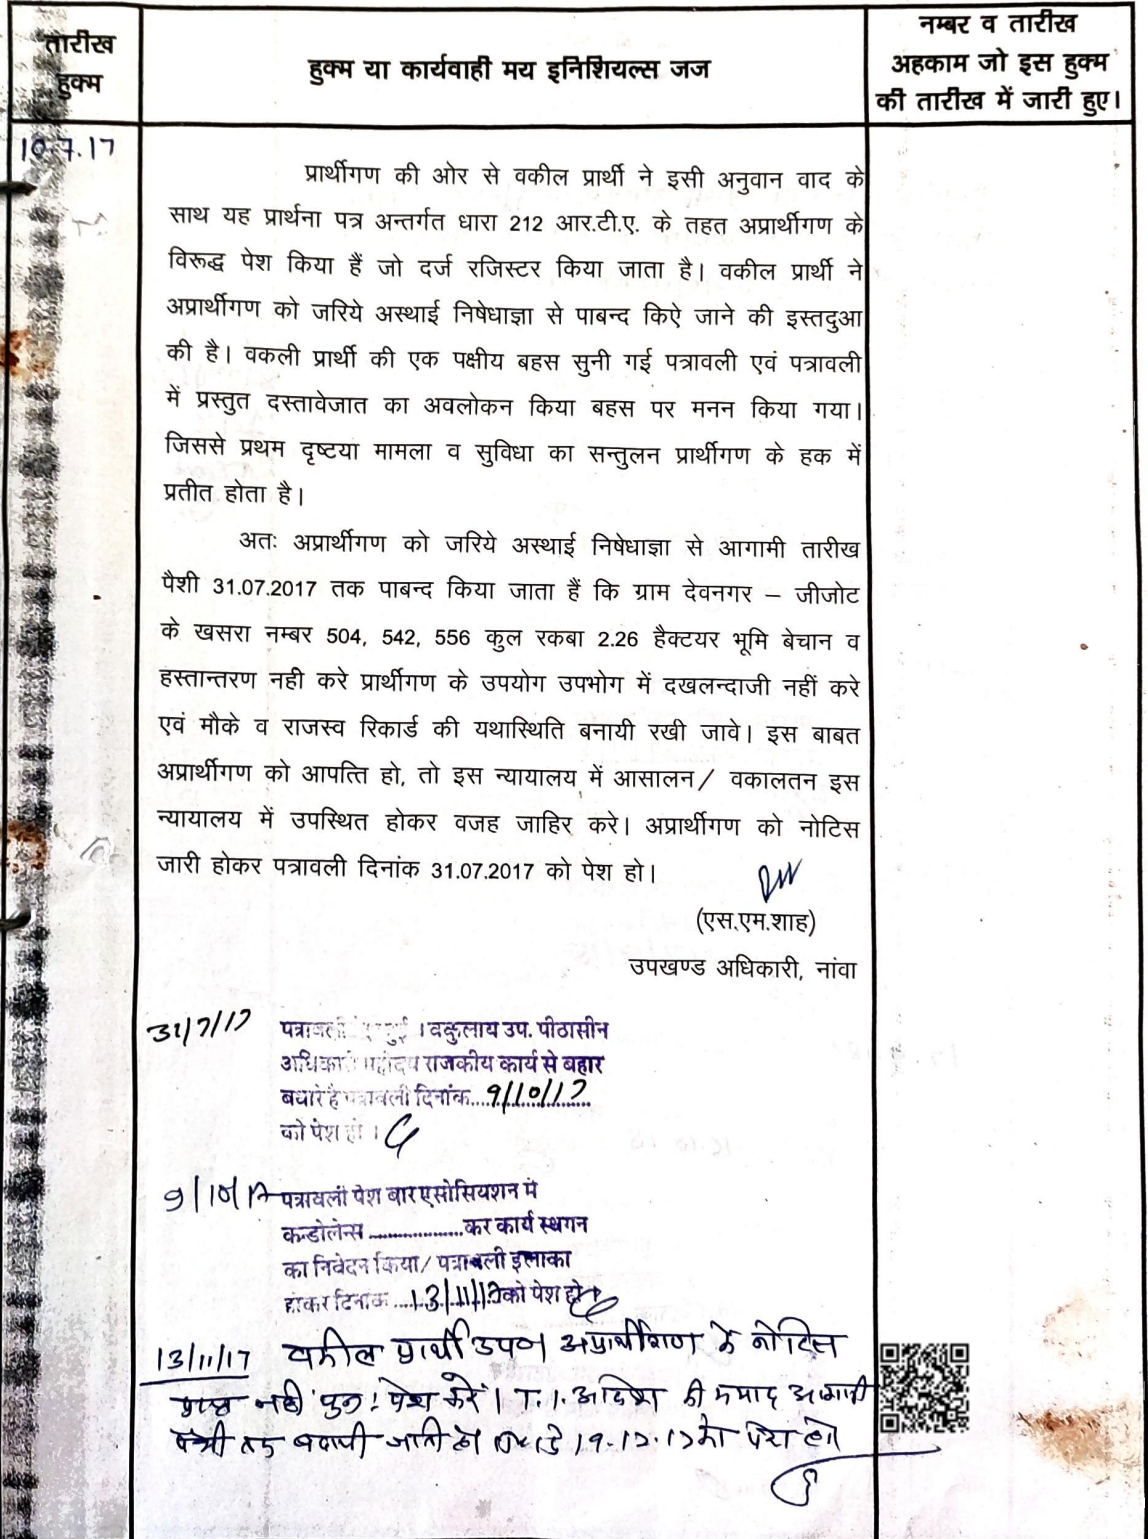 तारीख
हुक्म
हुक्म या कार्यवाही मय इनिशियल्स जज
नम्बर व तारीख
अहकाम जो इस हुक्म
की तारीख में जारी हुए।
10.7.17
प्रार्थीगण की ओर से वकील प्रार्थी ने इसी अनुवान वाद के
साथ यह प्रार्थना पत्र अन्तर्गत धारा 212 आर.टी.ए. के तहत अप्रार्थीगण के
विरूद्ध पेश किया हैं जो दर्ज रजिस्टर किया जाता है। वकील प्रार्थी ने
अप्रार्थीगण को जरिये अस्थाई निषेधाज्ञा से पाबन्द किऐ जाने की इस्तदुआ
की है। वकली प्रार्थी की एक पक्षीय बहस सुनी गई पत्रावली एवं पत्रावली
में प्रस्तुत दस्तावेजात का अवलोकन किया बहस पर मनन किया गया।
जिससे प्रथम दृष्टया मामला व सुविधा का सन्तुलन प्रार्थीगण के हक में
प्रतीत होता है।
अतः अप्रार्थीगण को जरिये अस्थाई निषेधाज्ञा से आगामी तारीख
पैशी 31.07.2017 तक पाबन्द किया जाता हैं कि ग्राम देवनगर – जीजोट
के खसरा नम्बर 504, 542, 556 कुल रकबा 2.26 हैक्टयर भूमि बेचान व
हस्तान्तरण नही करे प्रार्थीगण के उपयोग उपभोग में दखलन्दाजी नहीं करे
एवं मौके व राजस्व रिकार्ड की यथास्थिति बनायी रखी जावे। इस बाबत
अप्रार्थीगण को आपत्ति हो, तो इस न्यायालय में आसालन/ वकालतन इस
न्यायालय में उपस्थित होकर वजह जाहिर करे। अप्रार्थीगण को नोटिस
जारी होकर पत्रावली दिनांक 31.07.2017 को पेश हो।
(एस.एम.शाह)
उपखण्ड अधिकारी, नांवा
31/7/17 पत्रावली । वकुलाय उप. पीठासीन
अधिकारी महोदय राजकीय कार्य से बहार
बधारे है पत्रावली दिनांक....9/10/17
को पेश हो।
9/10/17 पत्रावली पेश बार एसोसियशन में
कन्डोलेन्स ..................कर कार्य स्थगन
का निवेदन किया/ पत्रावली इलाका
होकर दिनांक ....13/11/17 को पेश हो
13/11/17 वकील प्रार्थी उपण अप्रार्थीगण के नोटिस
नही पुनः पेश करें। T.I. आदेश की मयाद आगामी
पेशी तक बढायी जाती है 19.12.17 को पेश हो